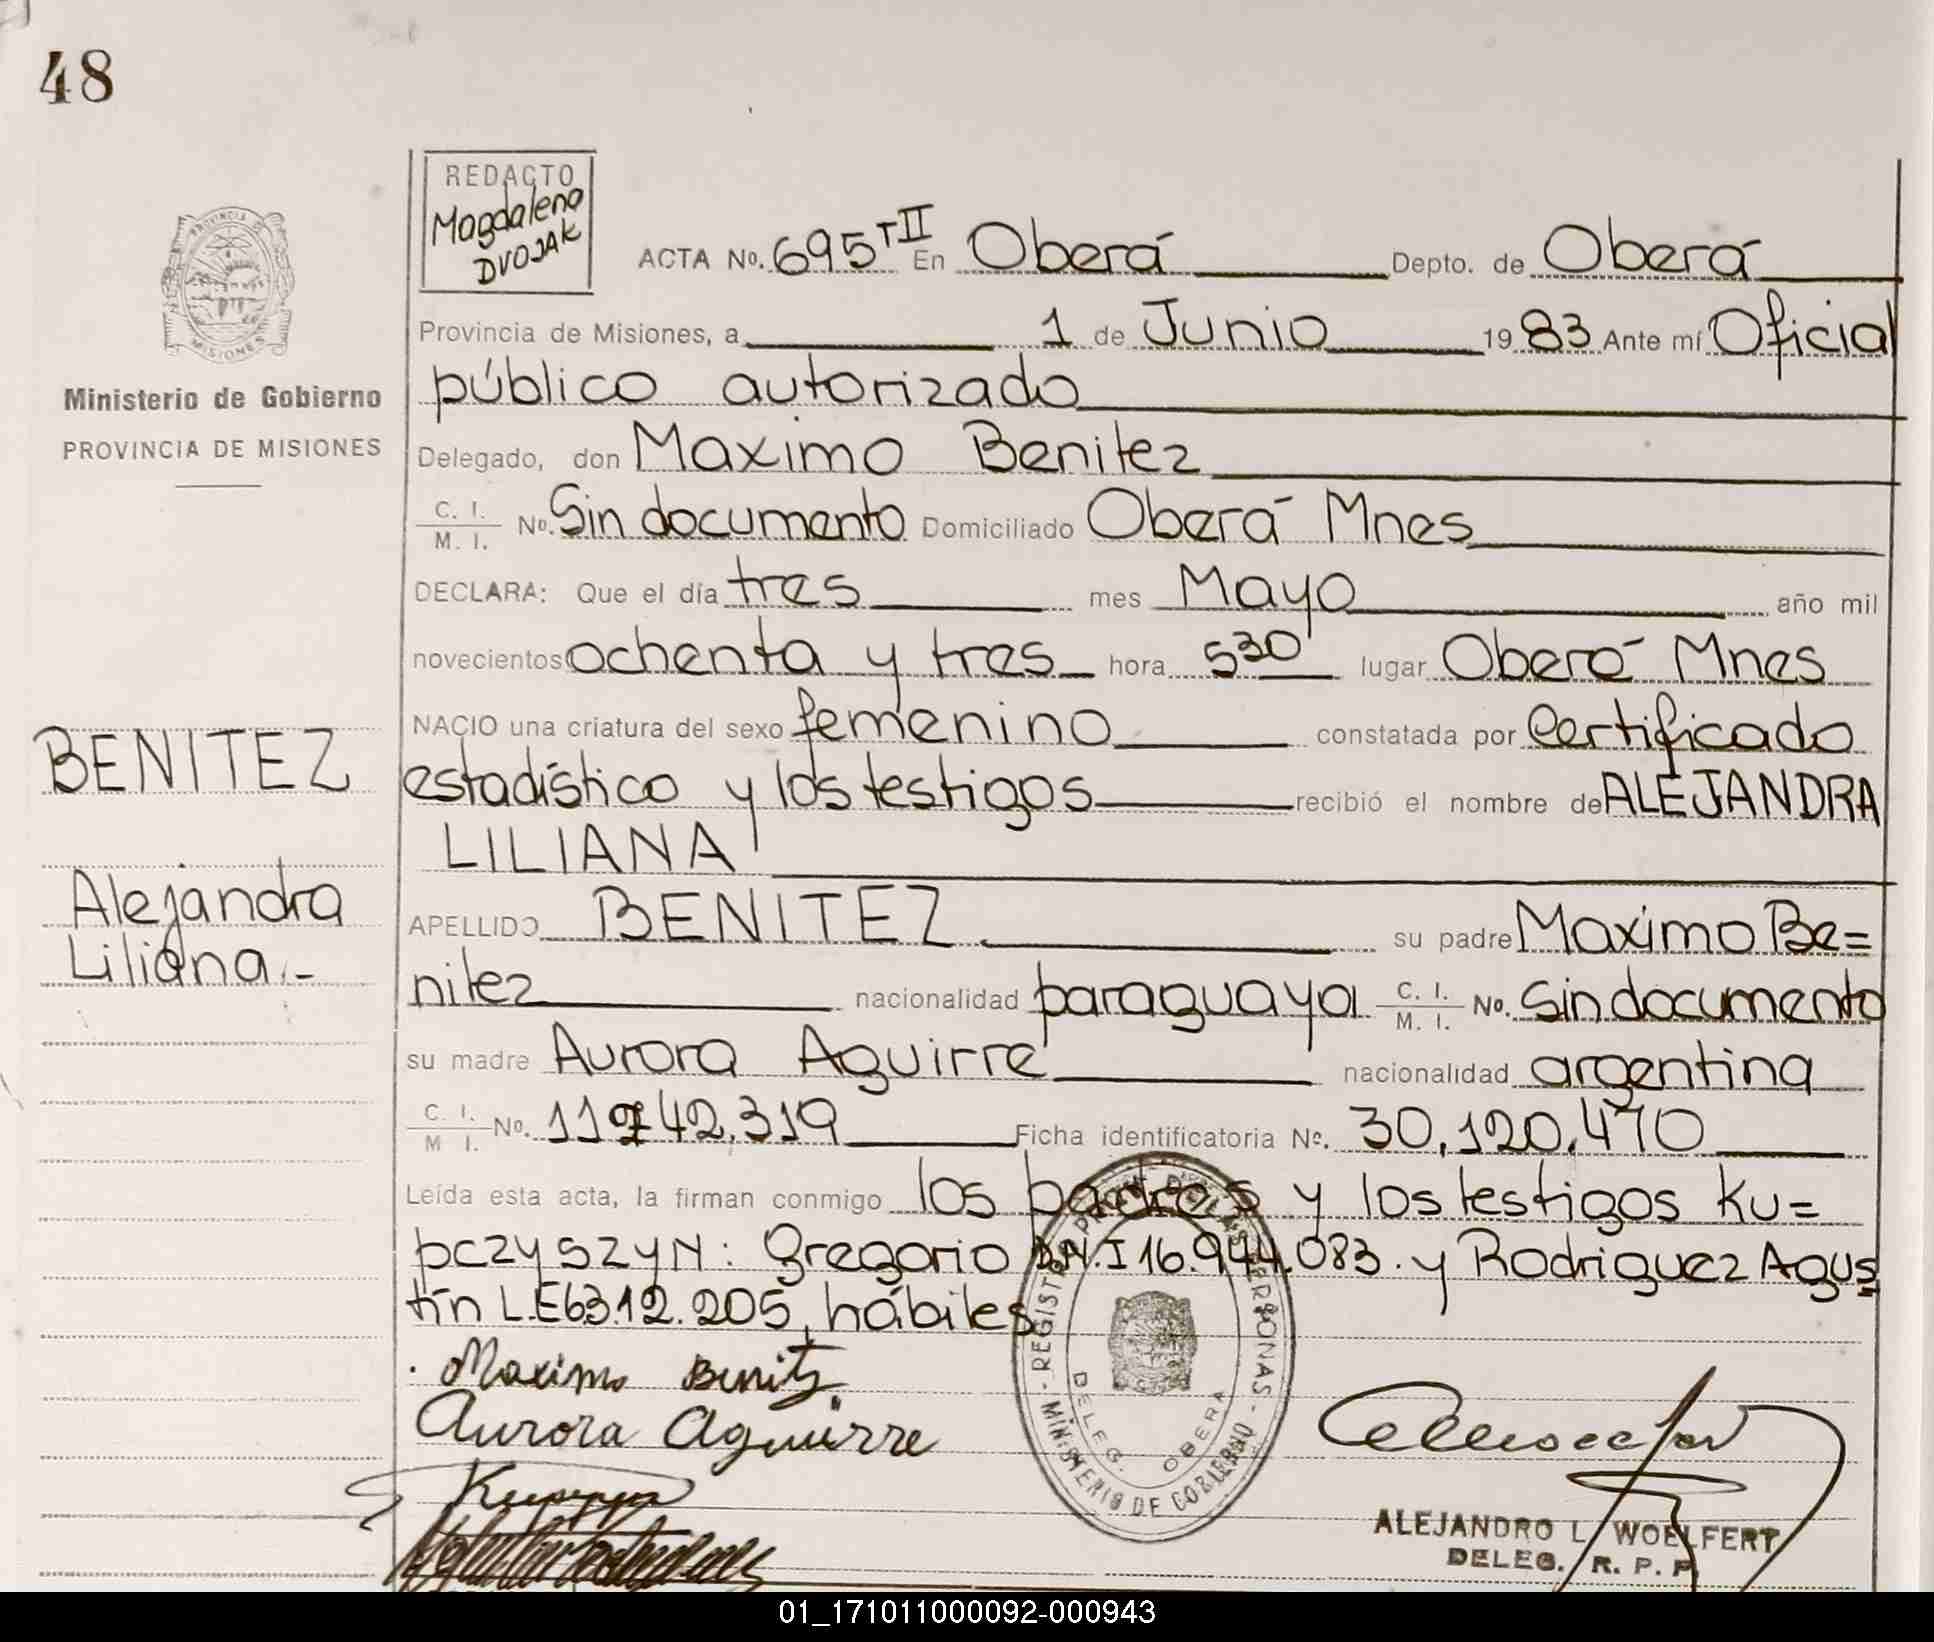 48
REDACTO
Magdalena
DVOJAK
PROVINCIA DE
MISIONES
ACTA No. 695 T II En Oberá Depto. de Oberá
Provincia de Misiones, a 1 de Junio 1983 Ante mí Oficial
público autorizado
Ministerio de Gobierno
PROVINCIA DE MISIONES
Delegado, don Maximo Benitez
C. I. M. I. No. Sin documento Domiciliado Oberá Mnes
DECLARA: Que el día tres mes Mayo año mil
novecientos ochenta y tres hora 5 30 lugar Oberá Mnes
NACIO una criatura del sexo femenino constatada por Certificado
BENITEZ
estadístico y los testigos recibió el nombre de ALEJANDRA
LILIANA
Alejandra
Liliana.-
APELLIDO BENITEZ su padre Maximo Be=
nitez nacionalidad paraguaya C. I. M. I. No. Sin documento
su madre Aurora Aguirre nacionalidad argentina
C. I. M I. No. 11742.319 Ficha identificatoria No. 30.120.470
Leída esta acta, la firman conmigo los padres y los testigos Ku=
pczyszyn: Gregorio D.N.I 16.944.083. y Rodriguez Agus
tín L.E 6312.205, hábiles
Maximo Benitz
Aurora Aguirre
REGISTRO PROV. DE LAS PERSONAS - MINISTERIO DE GOBIERNO
DELEG. OBERA
ALEJANDRO L WOELFERT
DELEG. R. P. P.
01_171011000092-000943